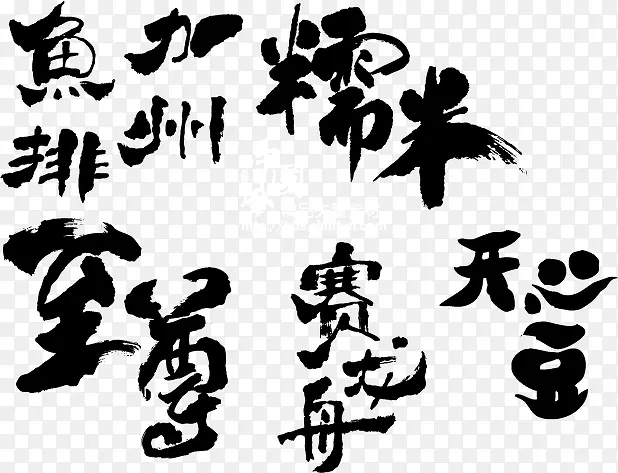 加州
魚排
糯米
至尊
赛龙舟
开心豆